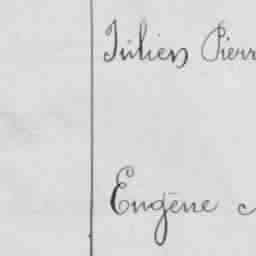 Julien Pierr
Eugène